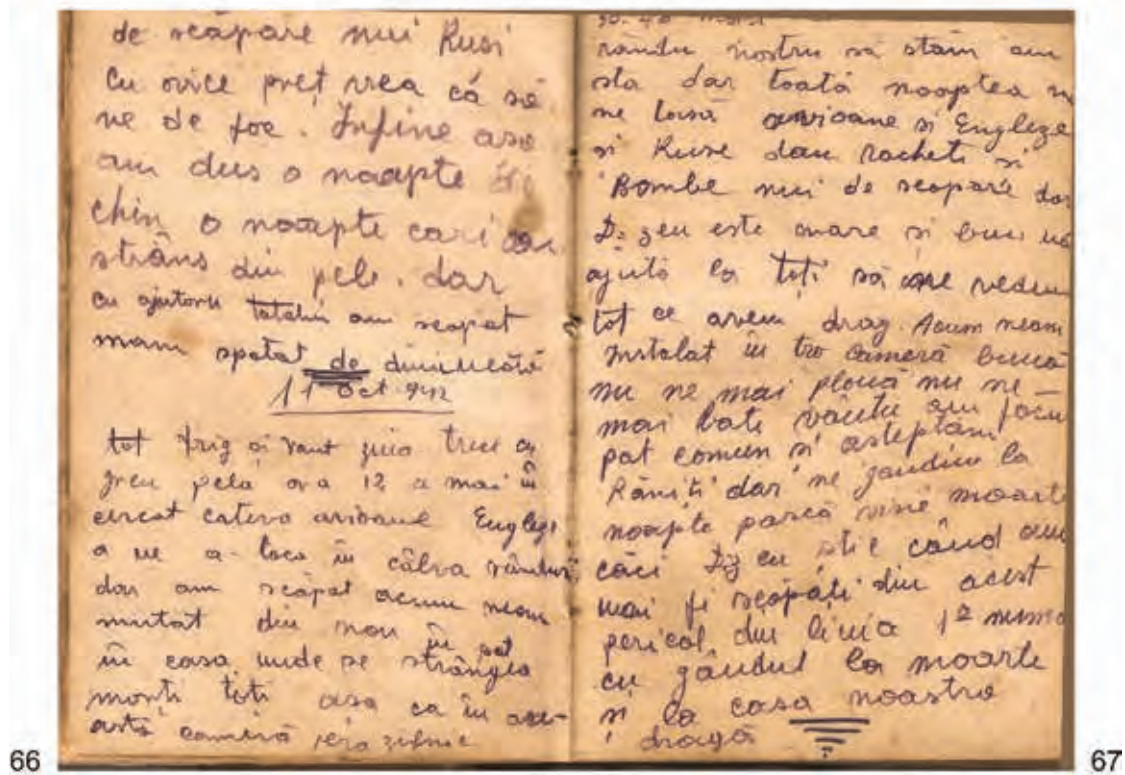 de scăpare nui Ruși
cu orice preț vrea că să
ne de foc. Infine asa
am dus o noapte de
chin o noapte cari
strâns din pele. dar
cu ajutoru tatălui am scapat
mam spălat de dimineață
11 Oct. 942
tot frig și vant ziua trece
greu pela ora 12 a mai în
cercat cateva avioane Engleze
a ne a-taca în câtva rânduri
dar am scăpat acum neam
mutat din nou în sat
in casa unde se strângea
morți toti asa ca în ace-
astă cameră
66
30-40
rându nostru să stăm am
sta dar toată noaptea
ne lasă avioane si Engleze
si Ruse dau rachete si
Bombe nui de scapare dar
Dzeu este mare si bun
ajută la toți să ne vedem
tot ce avem drag. Acum neam
instalat în tro cameră bună
nu ne mai plouă nu ne-
mai bate vântu am făcu
pat comun si asteptăm
Răniți dar ne gandim la
noapte parcă vine moarte
căci Dzeu stie când om
mai fi scăpăti din acest
pericol, din linia 1ª numa
cu gândul la moarte
si la casa noastra
dragă
67